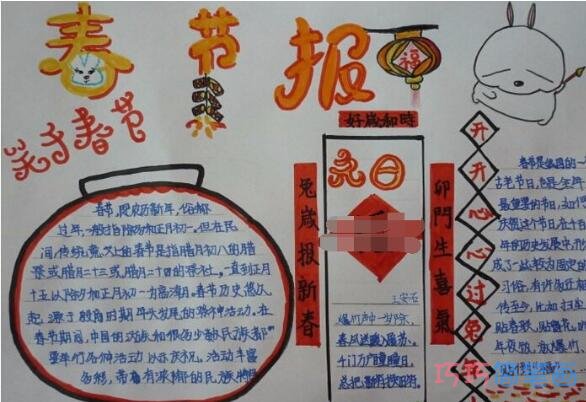 春节报
福
关于春节
春节,即农历新年,俗称
过年,一般指除夕和正月初一。但在民
间,传统意义上的春节是指腊月初八的腊
祭或腊月二十三或腊月二十四的祭灶,一直到正月
十五,以除夕和正月初一为高潮。春节历史悠久
起源于殷商时期年头岁尾的祭神活动。在
春节期间,中国的汉族和很多少数民族都
要举行各种活动以示庆祝。活动丰富
多彩,带有浓郁的民族特色
好歲和時
兔歲报新春
卯門生喜氣
元日
王安石
爆竹声中一岁除,
春风送暖入屠苏。
千门万户曈曈日,
总把新桃换旧符。
开开心心过兔年
春节是我国的一
古老节日,也是全年
最重要的节日,如何
庆祝这个节日,在千百
年的历史发展中,形
成了一些较为固定的
习俗,有许多还相
传至今,比如扫尘
贴春联、贴窗花、
年夜饭、放爆竹、